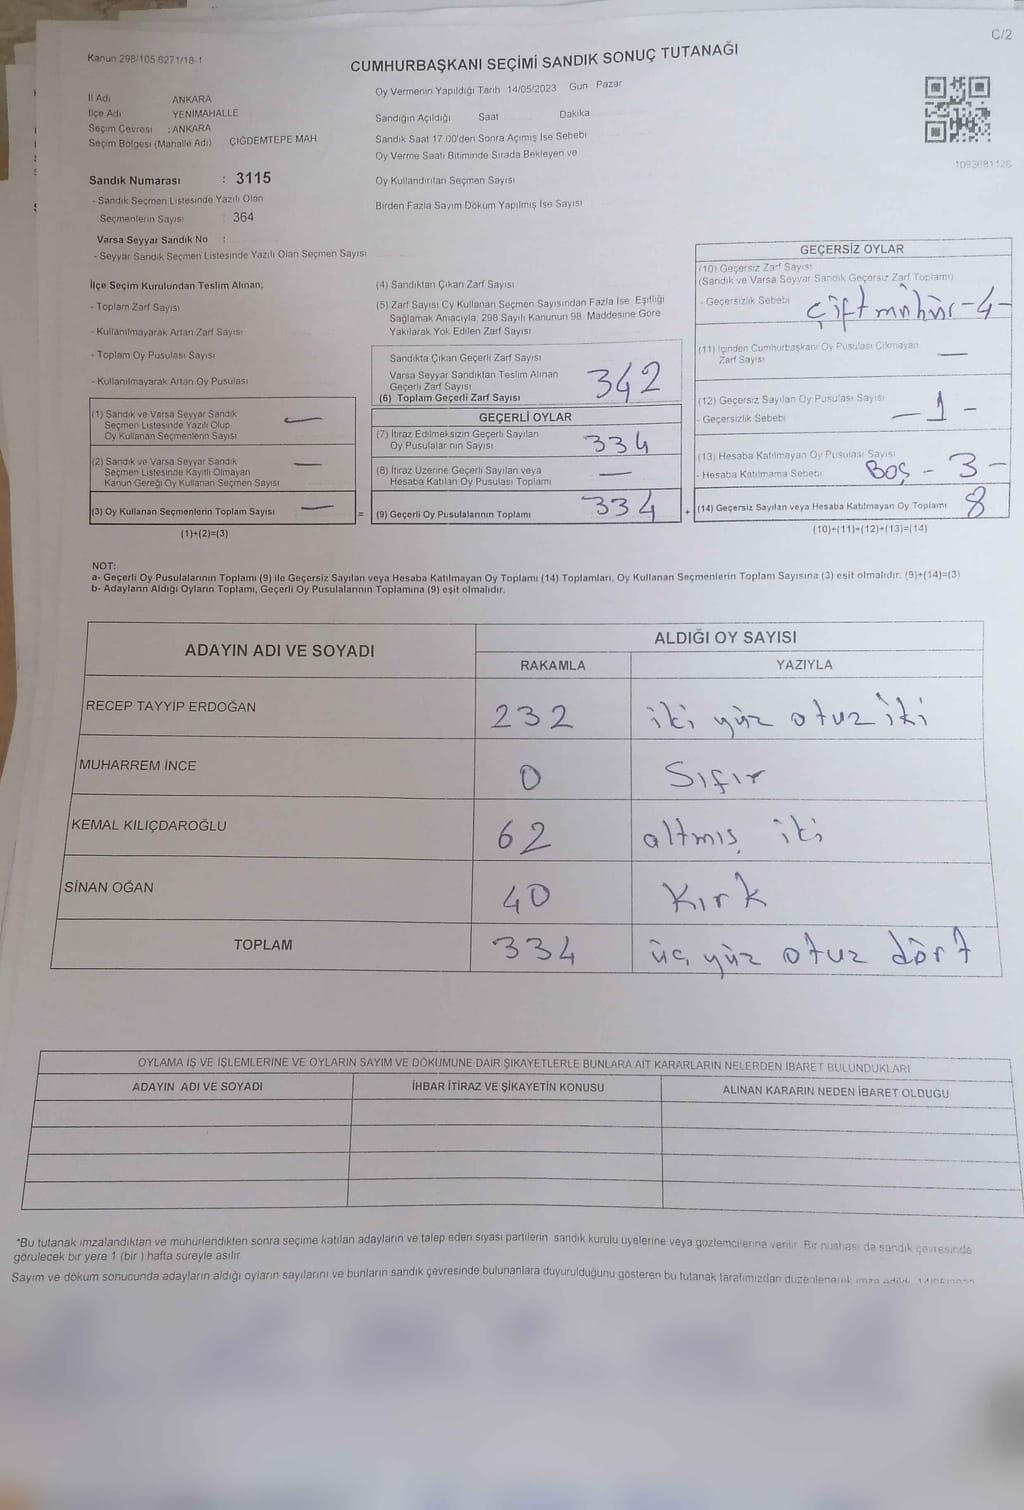 C/2
Kanun 298/105 6271/18-1
CUMHURBAŞKANI SEÇİMİ SANDIK SONUÇ TUTANAĞI
İl Adı ANKARA
İlçe Adı YENİMAHALLE
Seçim Çevresi : ANKARA
Seçim Bölgesi (Mahalle Adı) ÇİĞDEMTEPE MAH
Sandık Numarası : 3115
- Sandık Seçmen Listesinde Yazılı Olan
Seçmenlerin Sayısı : 364
Varsa Seyyar Sandık No :
- Seyyar Sandık Seçmen Listesinde Yazılı Olan Seçmen Sayısı
Oy Vermenin Yapıldığı Tarih 14/05/2023 Gün Pazar
Sandığın Açıldığı Saat Dakika
Sandık Saat 17.00'den Sonra Açımış İse Sebebi
Oy Verme Saati Bitiminde Sırada Bekleyen ve
Oy Kullandırılan Seçmen Sayısı
Birden Fazla Sayım Döküm Yapılmış İse Sayısı
1093681126
İlçe Seçim Kurulundan Teslim Alınan;
- Toplam Zarf Sayısı
- Kullanılmayarak Artan Zarf Sayısı
- Toplam Oy Pusulası Sayısı
- Kullanılmayarak Artan Oy Pusulası
(1) Sandık ve Varsa Seyyar Sandık
Seçmen Listesinde Yazılı Olup
Oy Kullanan Seçmenlerin Sayısı —
(2) Sandık ve Varsa Seyyar Sandık
Seçmen Listesinde Kayıtlı Olmayan
Kanun Gereği Oy Kullanan Seçmen Sayısı —
(3) Oy Kullanan Seçmenlerin Toplam Sayısı —
(1)+(2)=(3)
=
(4) Sandıktan Çıkan Zarf Sayısı
(5) Zarf Sayısı Oy Kullanan Seçmen Sayısından Fazla İse Eşitliği
Sağlamak Amacıyla; 298 Sayılı Kanunun 98. Maddesine Göre
Yakılarak Yok Edilen Zarf Sayısı
Sandıkta Çıkan Geçerli Zarf Sayısı
Varsa Seyyar Sandıktan Teslim Alınan
Geçerli Zarf Sayısı
(6) Toplam Geçerli Zarf Sayısı 342
GEÇERLİ OYLAR
(7) İtiraz Edilmeksizin Geçerli Sayılan
Oy Pusulalarının Sayısı 334
(8) İtiraz Üzerine Geçerli Sayılan veya
Hesaba Katılan Oy Pusulası Toplamı —
(9) Geçerli Oy Pusulalarının Toplamı 334
+
GEÇERSİZ OYLAR
(10) Geçersiz Zarf Sayısı
(Sandık ve Varsa Seyyar Sandık Geçersiz Zarf Toplamı)
- Geçersizlik Sebebi çift mühür - 4 -
(11) İçinden Cumhurbaşkanı Oy Pusulası Çıkmayan
Zarf Sayısı —
(12) Geçersiz Sayılan Oy Pusulası Sayısı
- Geçersizlik Sebebi - 1 -
(13) Hesaba Katılmayan Oy Pusulası Sayısı
- Hesaba Katılmama Sebebi Boş - 3 -
(14) Geçersiz Sayılan veya Hesaba Katılmayan Oy Toplamı 8
(10)+(11)+(12)+(13)=(14)
NOT:
a- Geçerli Oy Pusulalarının Toplamı (9) ile Geçersiz Sayılan veya Hesaba Katılmayan Oy Toplamı (14) Toplamları, Oy Kullanan Seçmenlerin Toplam Sayısına (3) eşit olmalıdır. (9)+(14)=(3)
b- Adayların Aldığı Oyların Toplamı, Geçerli Oy Pusulalarının Toplamına (9) eşit olmalıdır.
ADAYIN ADI VE SOYADI ALDIĞI OY SAYISI
RAKAMLA YAZIYLA
RECEP TAYYİP ERDOĞAN 232 iki yüz otuz iki
MUHARREM İNCE 0 Sıfır
KEMAL KILIÇDAROĞLU 62 altmış iki
SİNAN OĞAN 40 Kırk
TOPLAM 334 üç yüz otuz dört
OYLAMA İŞ VE İŞLEMLERİNE VE OYLARIN SAYIM VE DÖKÜMÜNE DAİR ŞİKAYETLERLE BUNLARA AİT KARARLARIN NELERDEN İBARET BULUNDUKLARI
ADAYIN ADI VE SOYADI İHBAR İTİRAZ VE ŞİKAYETİN KONUSU ALINAN KARARIN NEDEN İBARET OLDUĞU
*Bu tutanak imzalandıktan ve mühürlendikten sonra seçime katılan adayların ve talep eden siyasi partilerin sandık kurulu üyelerine veya gözlemcilerine verilir. Bir nushası da sandık çevresinde
görülecek bir yere 1 (bir ) hafta süreyle asılır
Sayım ve döküm sonucunda adayların aldığı oyların sayılarını ve bunların sandık çevresinde bulunanlara duyurulduğunu gösteren bu tutanak tarafımızdan düzenlenerek imza edildi.